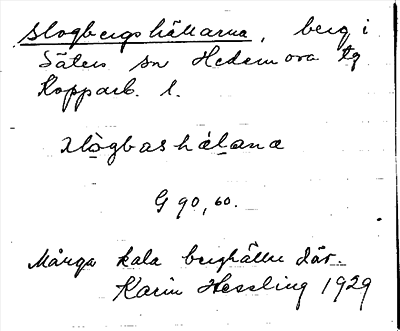 Slogbergshällarna, berg i
Säters sn Hedemora tg
Kopparb. l.
slògbashälana
G 90, 60.
Många kala berghällar där.
Karin Hessling 1929